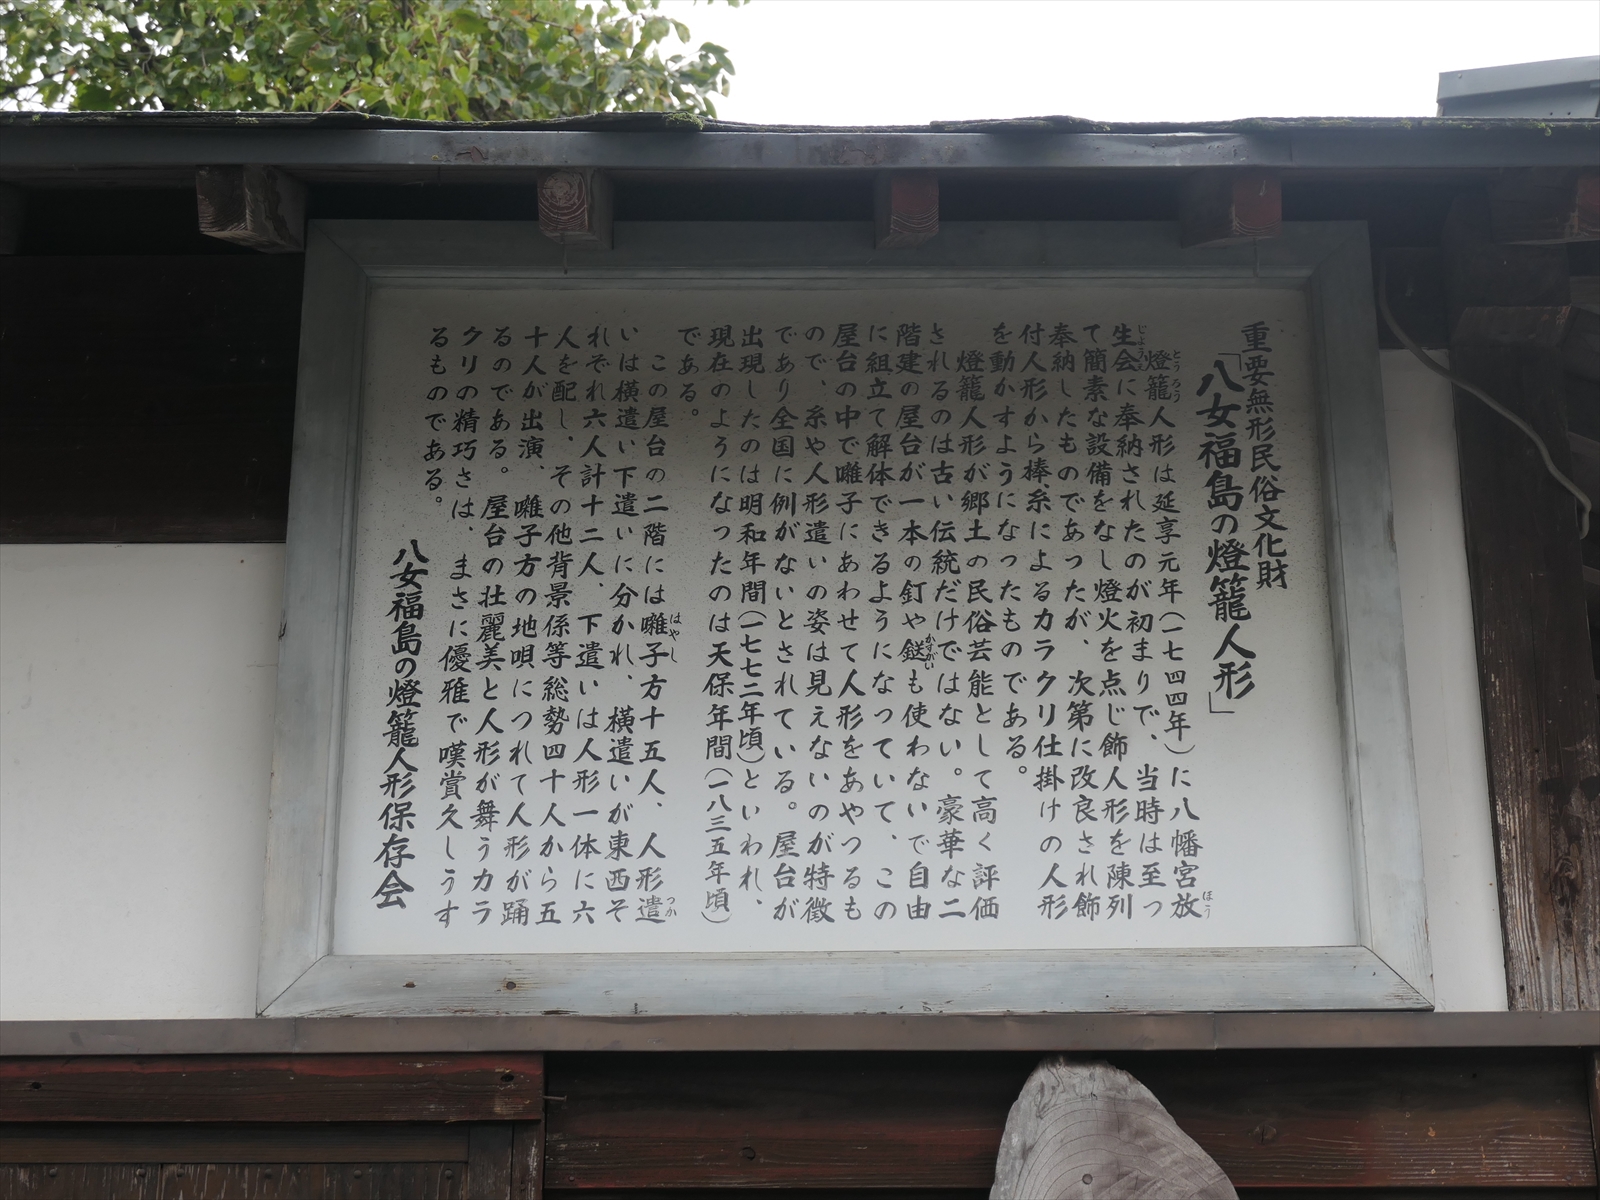 重要無形民俗文化財
「八女福島の燈籠人形」
燈籠人形は延享元年(一七四四年)に八幡宮放
生会に奉納されたのが初まりで、当時は至っ
て簡素な設備をなし燈火を点じ飾人形を陳列
奉納したものであったが、次第に改良され飾
付人形から棒、糸によるカラクリ仕掛けの人形
を動かすようになったものである。
燈籠人形が郷土の民俗芸能として高く評価
されるのは古い伝統だけではない。豪華な二
階建の屋台が一本の釘や鎹も使わないで自由
に組立て解体できるようになっていて、この
屋台の中で囃子にあわせて人形をあやつるも
ので、糸や人形遣いの姿は見えないのが特徴
であり全国に例がないとされている。屋台が
出現したのは明和年間(一七七二年頃)といわれ、
現在のようになったのは天保年間(一八三五年頃)
である。
この屋台の二階には囃子方十五人、人形遣
いは横遣い下遣いに分かれ、横遣いが東西そ
れぞれ六人計十二人、下遣いは人形一体に六
人を配し、その他背景係等総勢四十人から五
十人が出演、囃子方の地唄につれて人形が踊
るのである。屋台の壮麗美と人形が舞うカラ
クリの精巧さは、まさに優雅で嘆賞久しうす
るものである。
八女福島の燈籠人形保存会